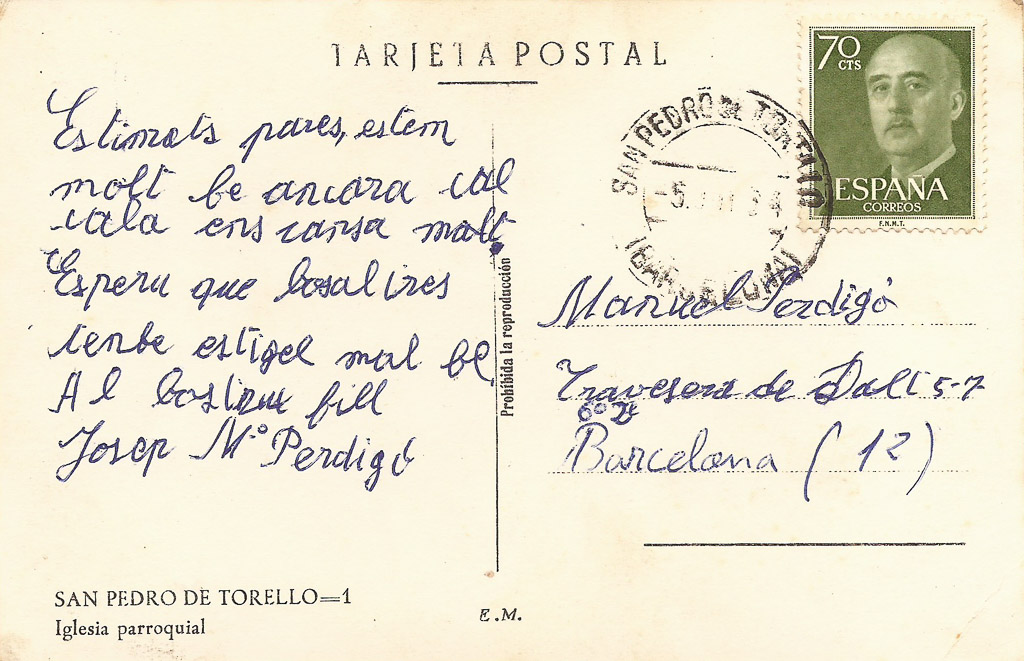 TARJETA POSTAL
Estimats pares, estem
molt be ancora cal
cala ens cansa malt
Esperu que bosalires
tenbe estigel mal be
Al bostrnu fill
Josep Mª Perdigó
SAN PEDRO DE TORELLO=1
Iglesia parroquial
E.M.
Prohibida la reproducción
70
CTS
ESPAÑA
CORREOS
F.N.M.T.
SAN PEDRO DE TORELLO
-5.
(BARCELONA)
Manuel Perdigó
Travesera de Dalt 5-7
6º
Barcelona (12)